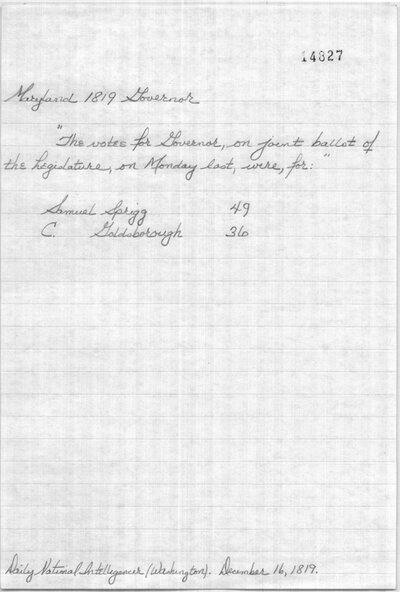 14827
Maryland 1819 Governor
"The votes for Governor, on joint ballot of
the Legislature, on Monday last, were, for:"
Samuel Sprigg 49
C. Goldsborough 36
Daily National Intelligencer (Washington). December 16, 1819.